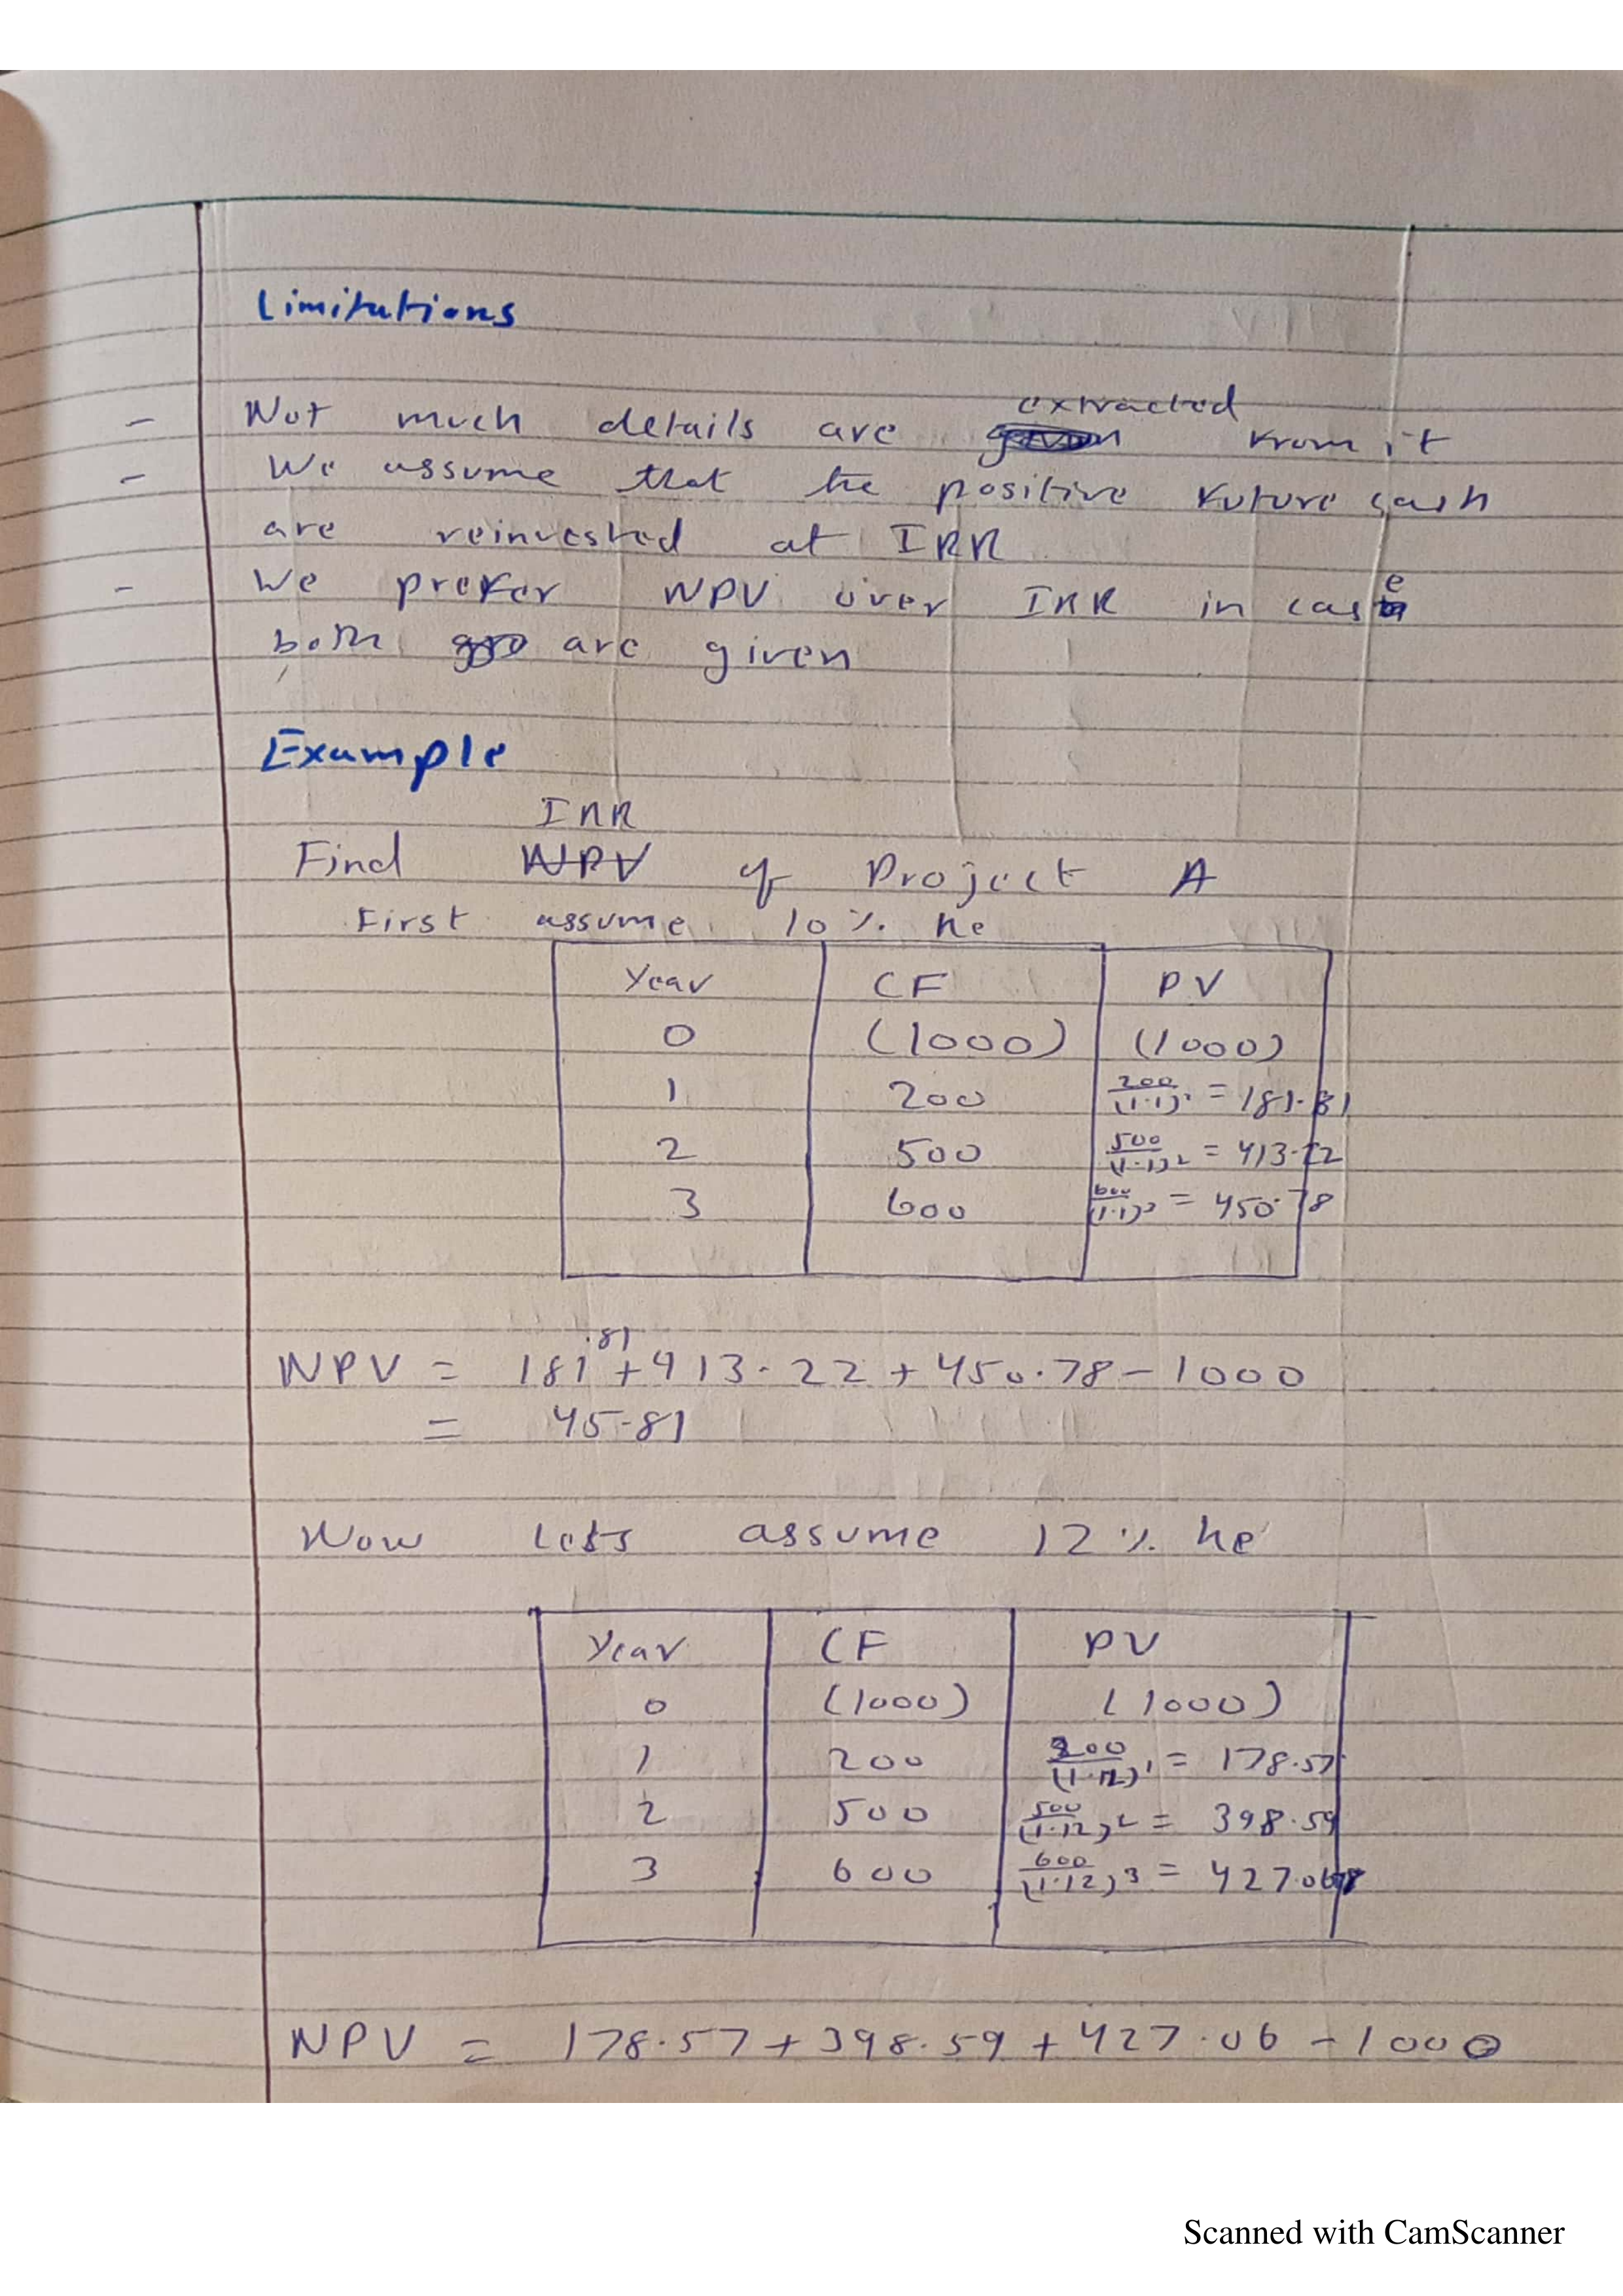 Limitations
- Not much details are extracted from it
- We assume that the positive future cash
are reinvested at IRR
- We prefer NPV over IRR in case
both are given
Example
IRR
Find NPV of Project A
First assume 10% ke
Year CF PV
0 (1000) (1000)
1 200 200/(1.1)¹ = 181.81
2 500 500/(1.1)² = 413.22
3 600 600/(1.1)³ = 450.78
NPV = 181.81 + 413.22 + 450.78 - 1000
= 45.81
Now Lets assume 12% ke
Year CF PV
0 (1000) (1000)
1 200 200/(1.12)¹ = 178.57
2 500 500/(1.12)² = 398.59
3 600 600/(1.12)³ = 427.068
NPV = 178.57 + 398.59 + 427.06 - 1000
Scanned with CamScanner